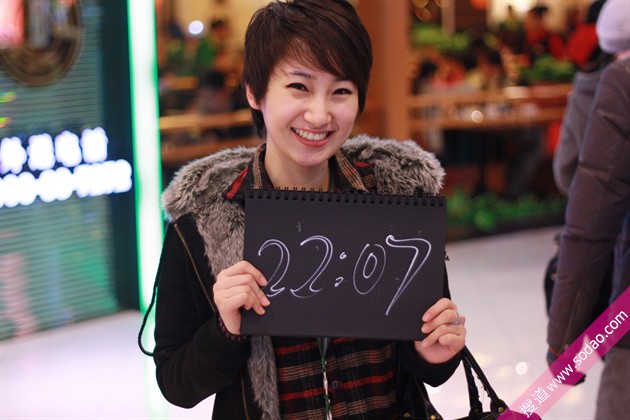 22:07
搜道 www.sodao.com